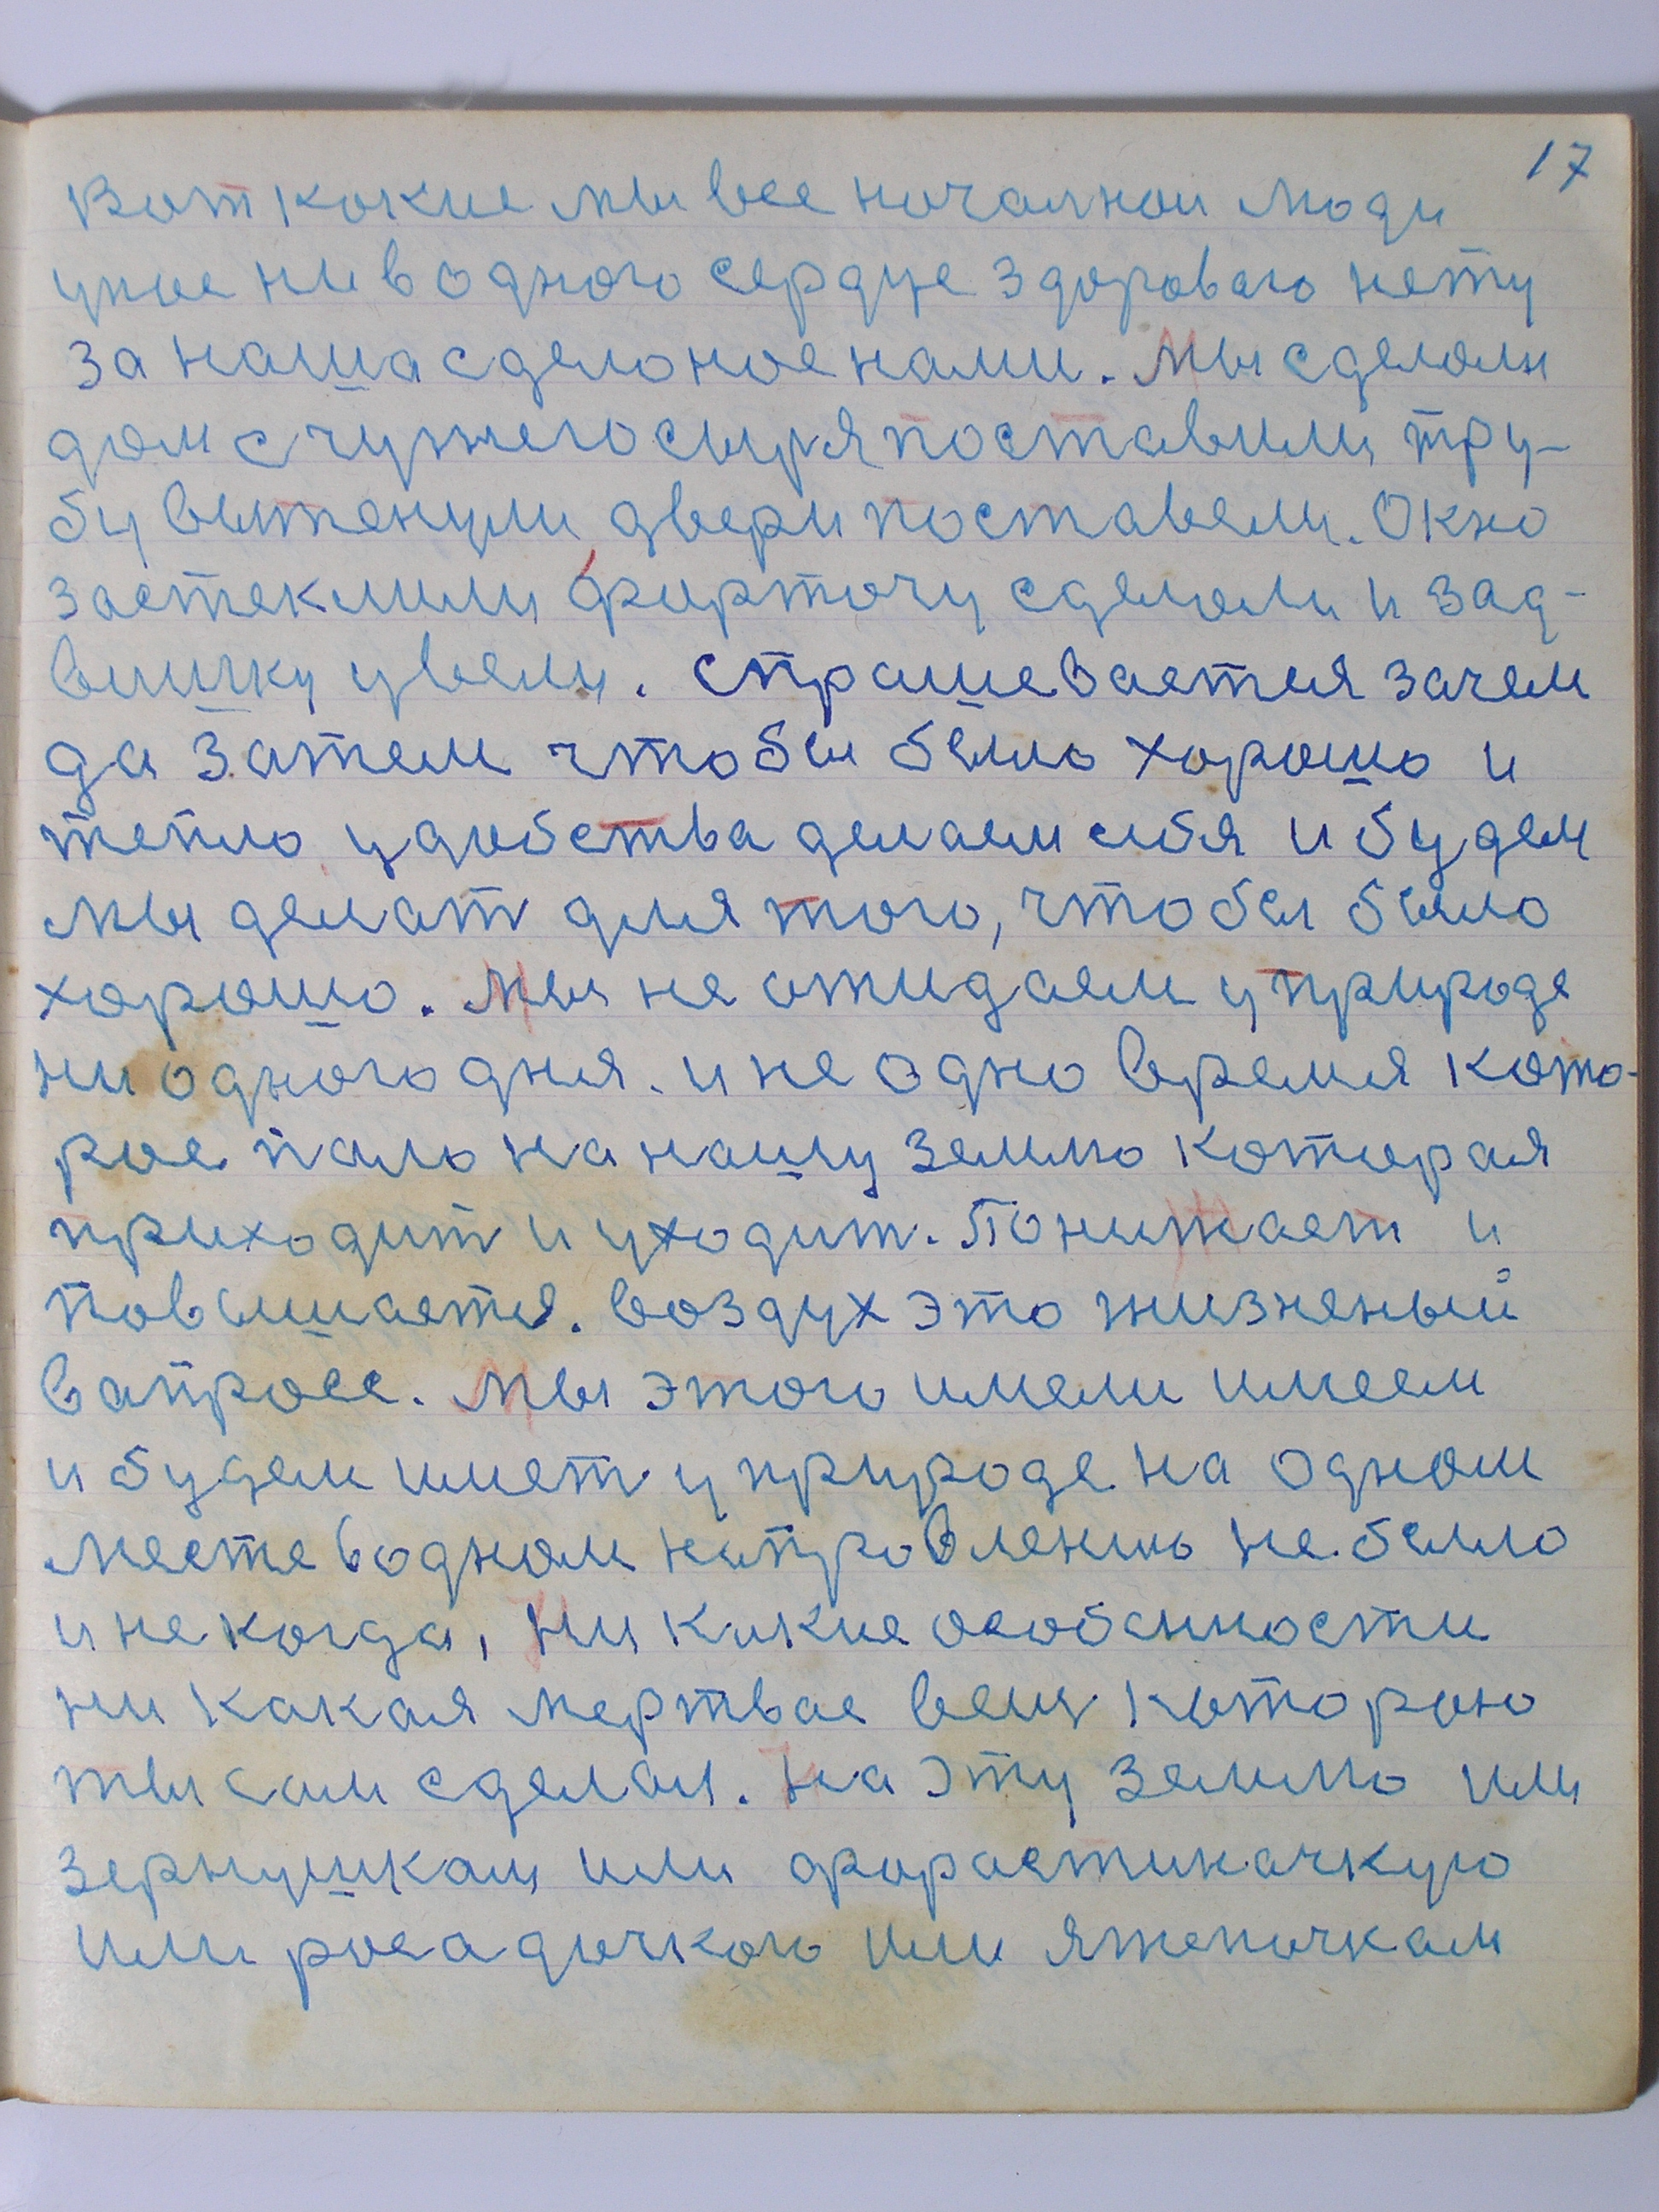 17
Вот кокие мы все началнои люди
унас ни в одного сердце здороваго нету
за наша сделоное нами. Мы сделоли
дом с чужего сыря поставили, тру-
бу вытенули двери поставели. Окно
застеклили форточу сделоли и зад-
вишку увели. Спрашевается зачем
да затем чтобы было хорошо и
тепло удобства делаем себя и будем
мы делат для того, чтобы было
хорошо. Мы не отидаем у природе
ни одного дня. и не одно время кото-
рое пало на нашу землю которая
приходит и уходит. Понижает и
повышается. Воздух это жизненый
вапросс. Мы этого имели имеем
и будем имет у природе на одном
месте водном направлению не было
и не когда, ни кокие особенности
ни какая мертвае вещ которою
ты сам сделал. На эту землю или
зернушкам или форостикачкую
или росадочкою или ятепочкам